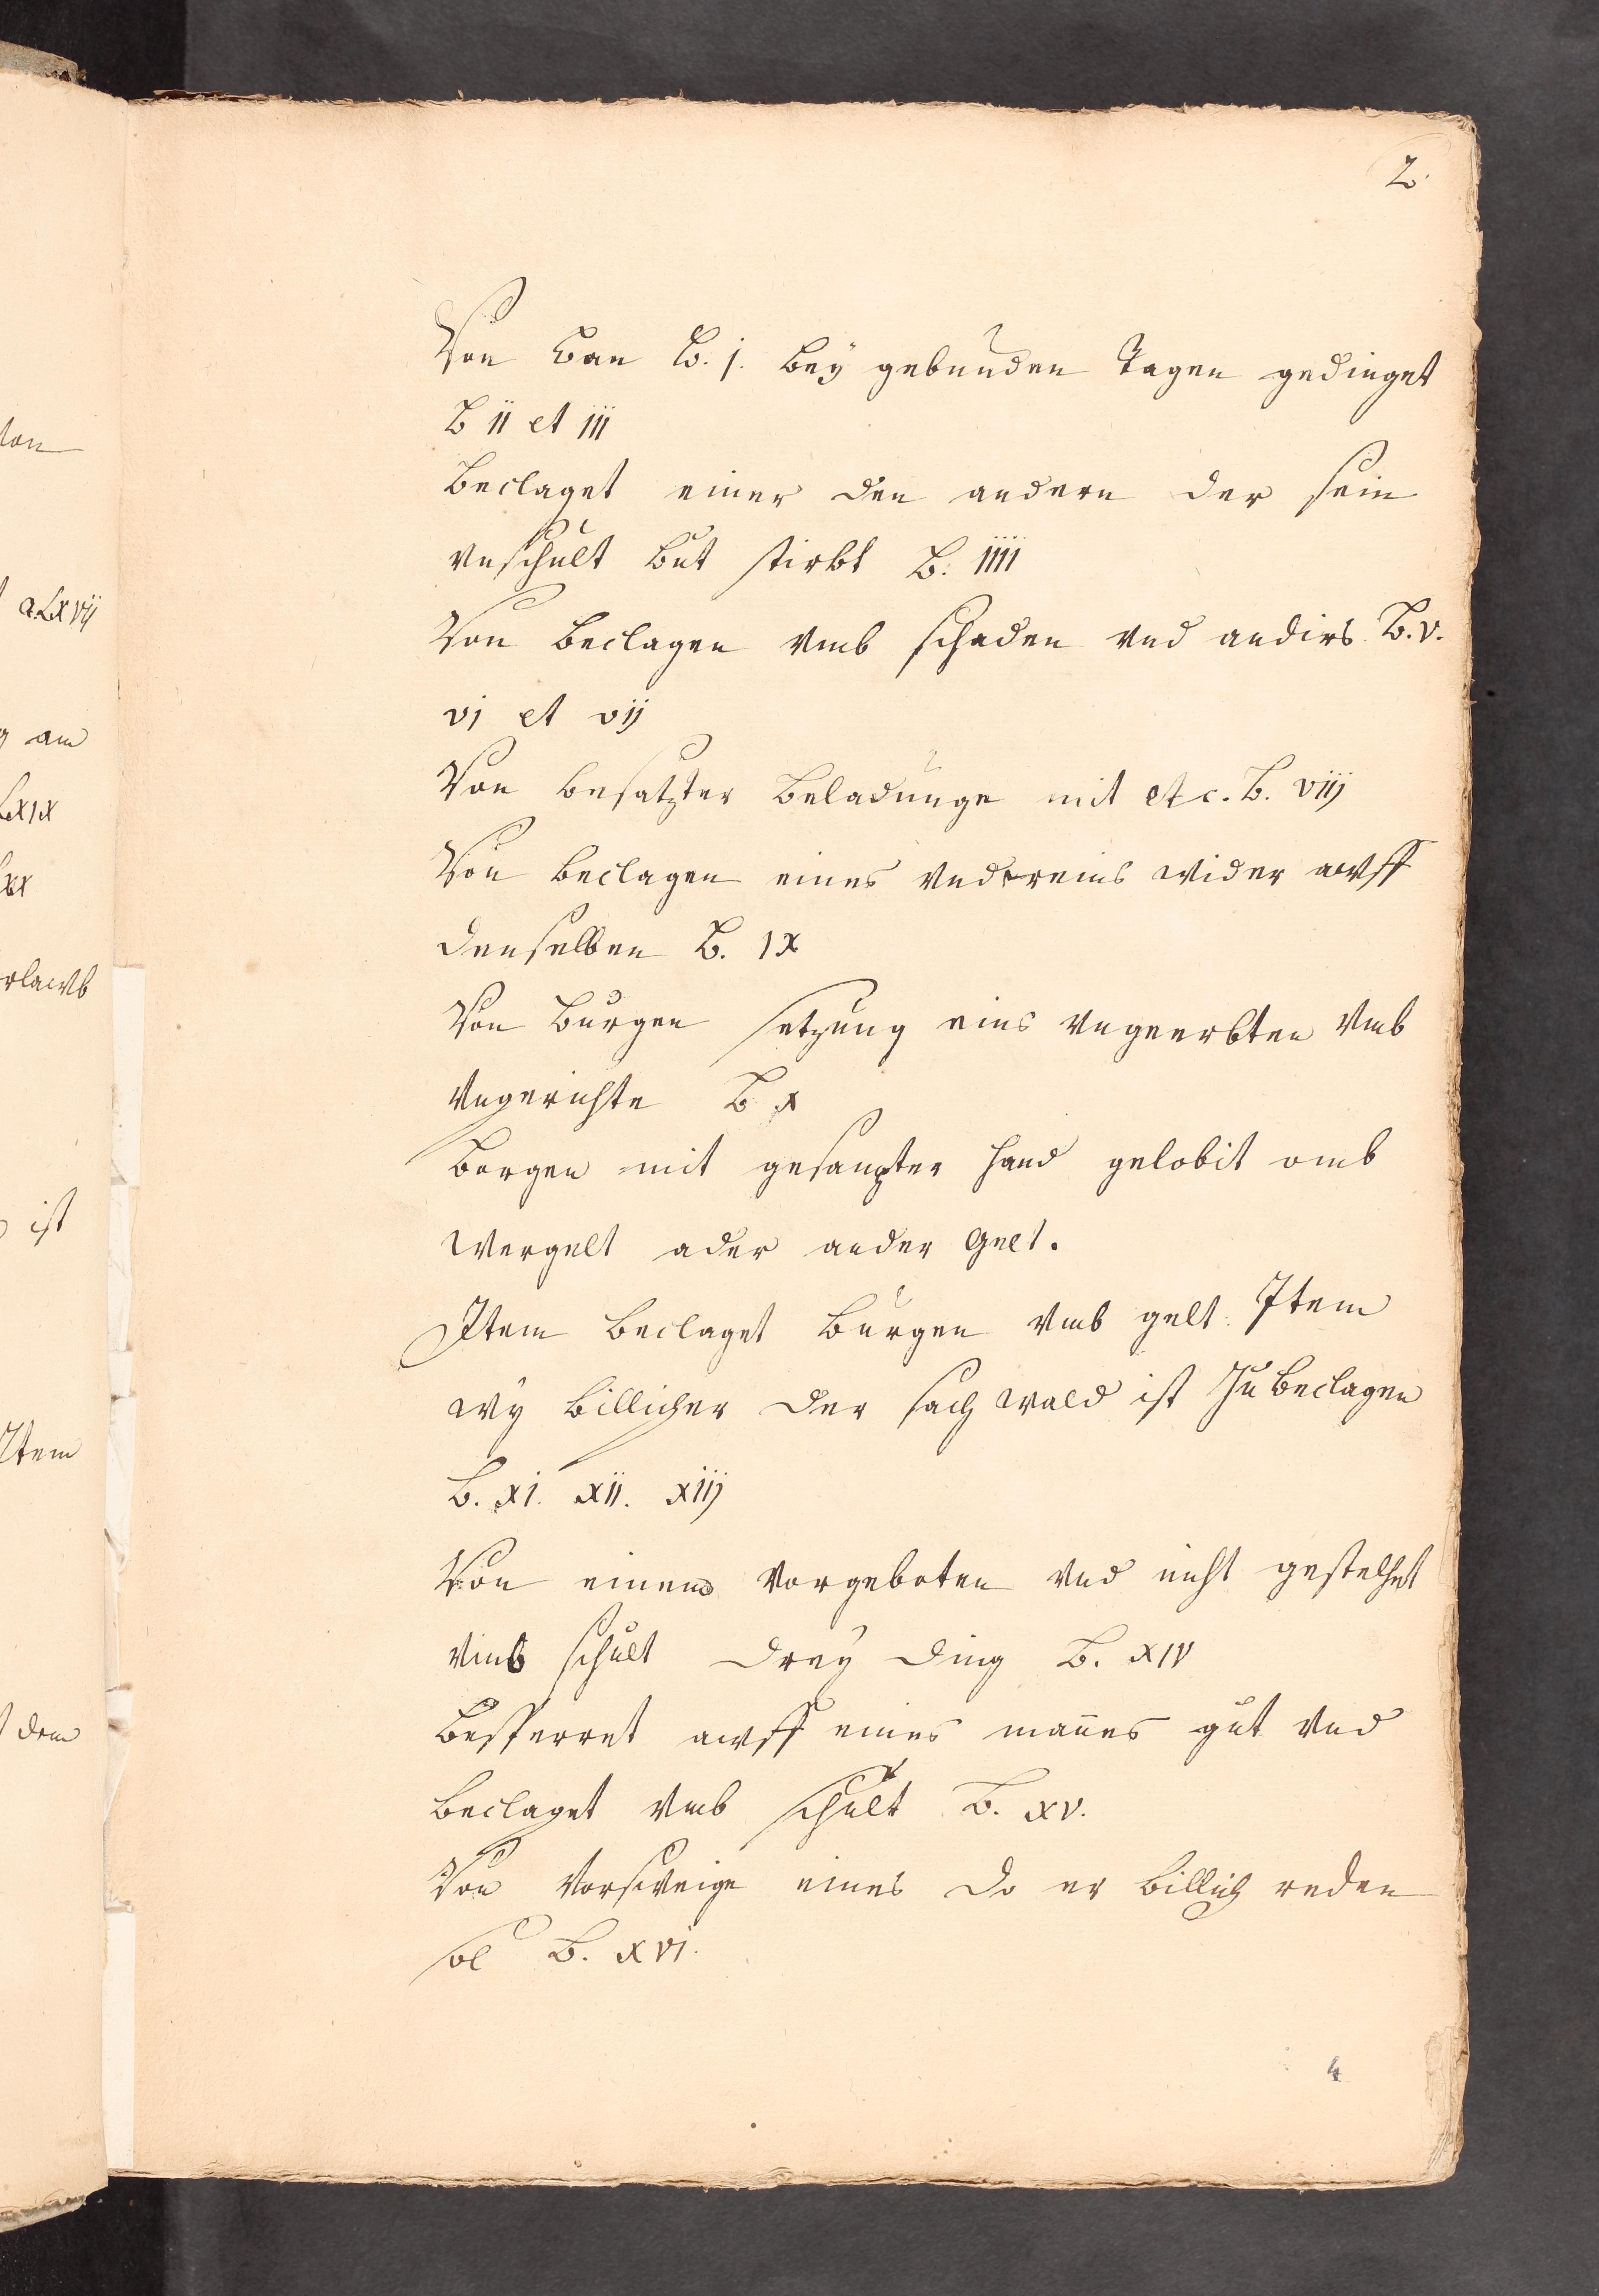 2.
Von Ban B. j. Bey gebunden Tagen gedinget
B ii et iii
Beclaget einer den andern der sein
vnschult but stirbt B. iiii
Von beclagen vmb schaden vnd andirs B. v.
vj et vij
Von besatzter beladunge mit etc. B. viij
Von beclagen eines vnd eins wider awff
denselben B. ix
Von Burgen setzung eins vngeerbten vmb
vngerichte B x
Borgen mit gesampter hand gelobit vmb
Wergelt ader ander gelt.
Item beclaget Burgen vmb gelt. Item
wy billicher der sachwald ist Zu beclagen
B. xi. xii. xiij
Von einem vorgeboten vnd nicht gestelhet
vmb schult drey ding B. xiv
Besperret awff eines mañes gut vnd
beclaget vmb schult B. xv.
Von vorsweige eines do er billich reden
sol B. xvi.
4
ton
a. Lxvij
am
Lxix
Lxx
rlawb
ist
Item
dem